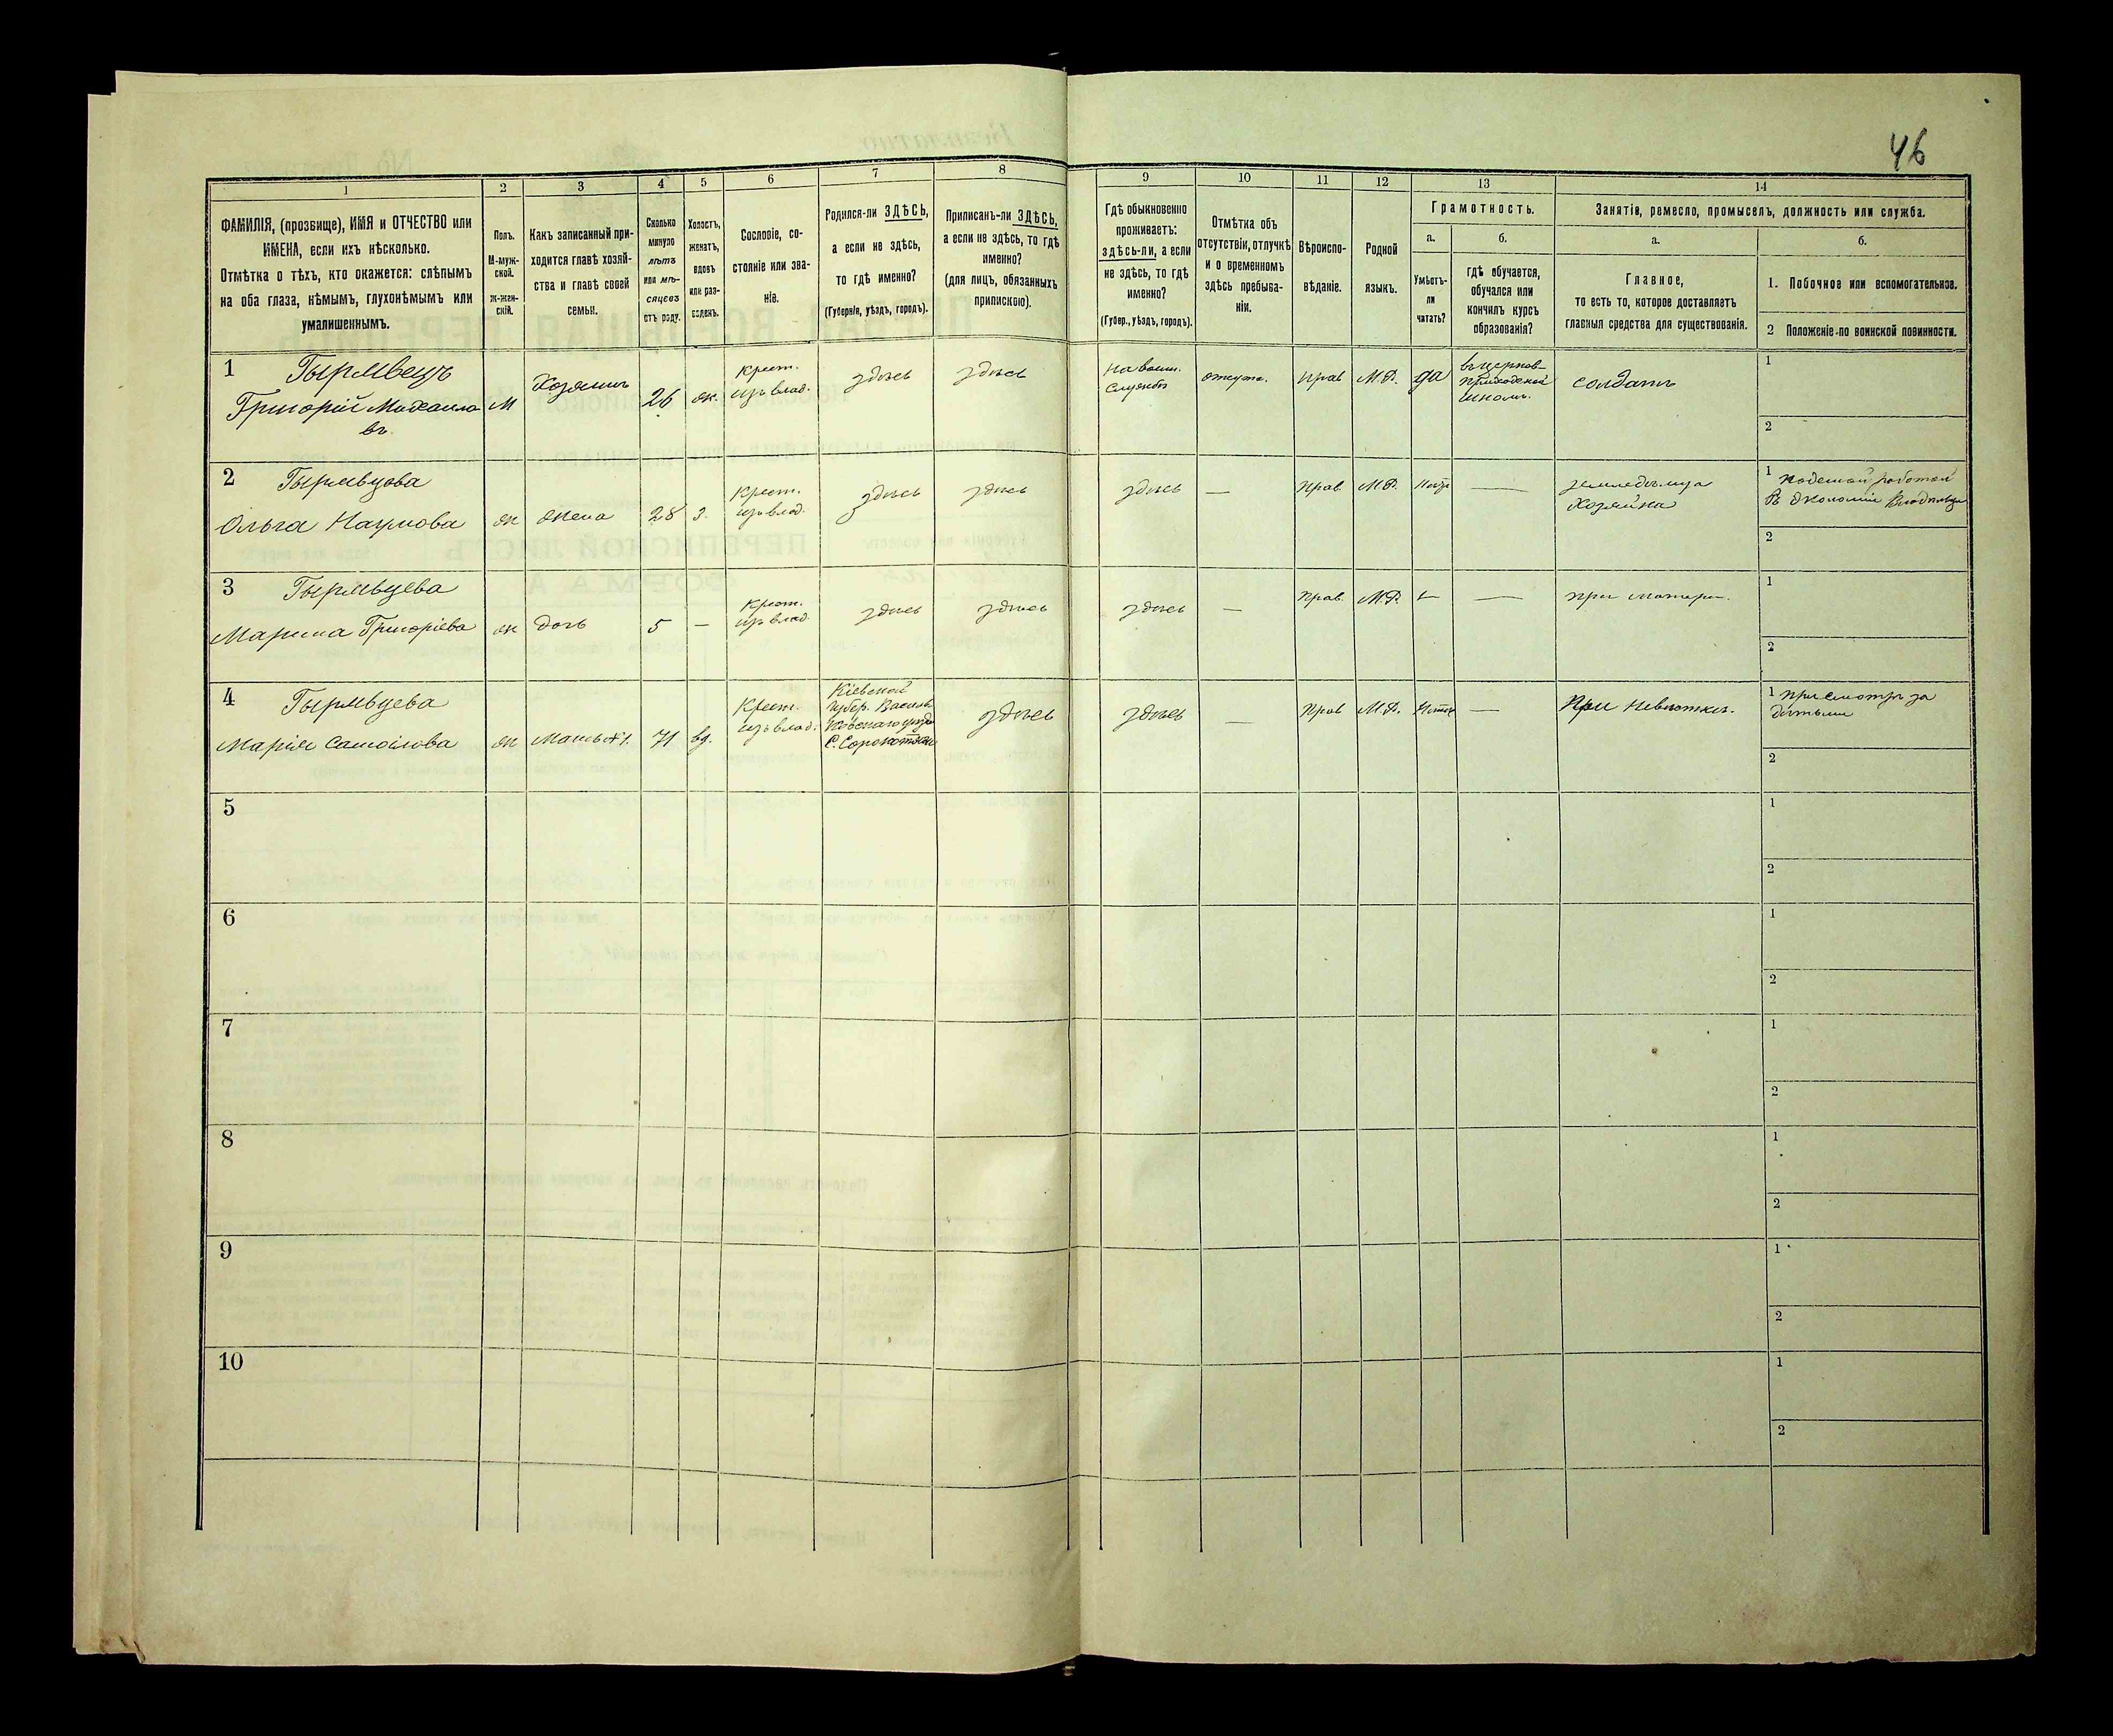 46
1 2 3 4 5 6 7 8 9 10 11 12 13 14
ФАМИЛІЯ, (прозвище), ИМЯ и ОТЧЕСТВО или
ИМЕНА, если ихъ нѣсколько.
Отмѣтка о тѣхъ, кто окажется: слѣпымъ
на оба глаза, нѣмымъ, глухонѣмымъ или
умалишеннымъ.
Полъ.
М-муж-
ской.
ж-жен-
скій.
Какъ записанный при-
ходится главѣ хозяй-
ства и главѣ своей
семьи.
Сколько
минуло
лѣтъ
или мѣ-
сяцевъ
отъ роду.
Холостъ,
женатъ,
вдовъ
или раз-
веденъ.
Сословіе, со-
стояніе или зва-
ніе.
Родился-ли ЗДѢСЬ,
а если не здѣсь,
то гдѣ именно?
(Губернія, уѣздъ, городъ).
Приписанъ-ли ЗДѢСЬ,
а если не здѣсь, то гдѣ
именно?
(для лицъ, обязанныхъ
припискою).
Гдѣ обыкновенно
проживаетъ:
здѣсь-ли, а если
не здѣсь, то гдѣ
именно?
(Губер., уѣздъ, городъ).
Отмѣтка объ
отсутствіи, отлучкѣ
и о временномъ
здѣсь пребыва-
ніи.
Вѣроиспо-
вѣданіе.
Родной
языкъ.
Грамотность.
а.
Умѣетъ-
ли
читать?
б.
гдѣ обучается,
обучался или
кончилъ курсъ
образованія?
Занятіе, ремесло, промыселъ, должность или служба.
а.
Главное,
то есть то, которое доставляетъ
главныя средства для существованія.
б.
1. Побочное или вспомогательное.
2 Положеніе по воинской повинности.
1
Григорій Михаило
въ
М
Хозяинъ
26
ж.
Крест.
изъ влад.
здѣсь
здѣсь
На воен.
службѣ
прав
М.Р.
да
въ церков-
приходской
школѣ.
солдатъ
1
2
2
Ольга Наумова
ж
жена
28
з.
Крест.
изъ влад.
здѣсь
здѣсь
здѣсь
—
прав.
М.Р.
—
Хозяйка
1 работой
въ экономіи
2
3
Марина Григоріева
ж
дочь
5
—
Крест.
изъ влад.
здѣсь
здѣсь
здѣсь
—
прав.
М.Р.
—
—
при матери.
1
2
4
Марія Самойлова
ж
Мать №1.
71
вд.
Крест.
изъ влад.
Кіевской
губер. Василь
здѣсь
здѣсь
—
прав
М.Р.
—
При невѣстке.
1 присмотръ за
дѣтьми
2
5
1
2
6
1
2
7
1
2
8
1
2
9
1
2
10
1
2